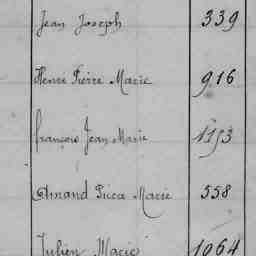 Jean Joseph 339
Henri Pierre Marie 916
François Jean Marie 1153
Armand Pierre Marie 558
Julien Marie 1064